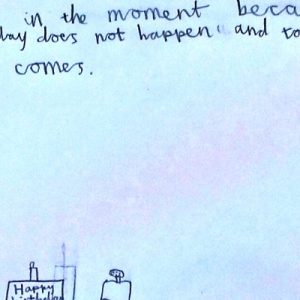 in the moment beca
day does not happen and to
comes.
Happy
birthday